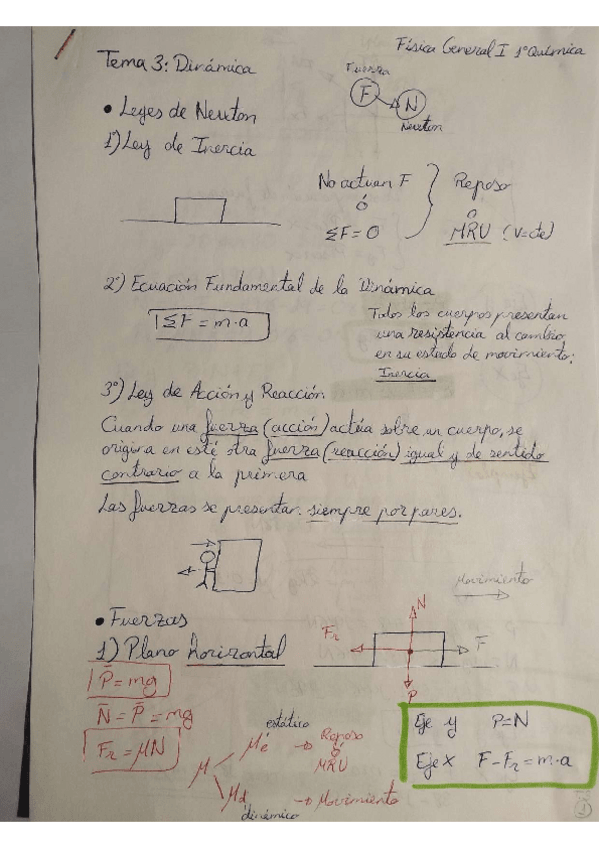 Física General I 1º Química
Tema 3: Dinámica
Fuerza
F
N
Newton
• Leyes de Newton
1) Ley de Inercia
No actúan F
ó
ΣF = 0
Reposo
o
MRU (v=cte)
2º) Ecuación Fundamental de la Dinámica
ΣF = m·a
Todos los cuerpos presentan
una resistencia al cambio
en su estado de movimiento:
Inercia
3º) Ley de Acción y Reacción
Cuando una fuerza (acción) actúa sobre un cuerpo, se
origina en esté otra fuerza (reacción) igual y de sentido
contrario a la primera
Las fuerzas se presentan siempre por pares.
Movimiento
• Fuerzas
1) Plano Horizontal
N
Fr
F
P
P̄ = mg
N̄ = P̄ = mg
Fr = μN
μ
estático
μe → Reposo
ó
MRU
μd → Movimiento
dinámico
Eje y P=N
Eje x F-Fr = m·a